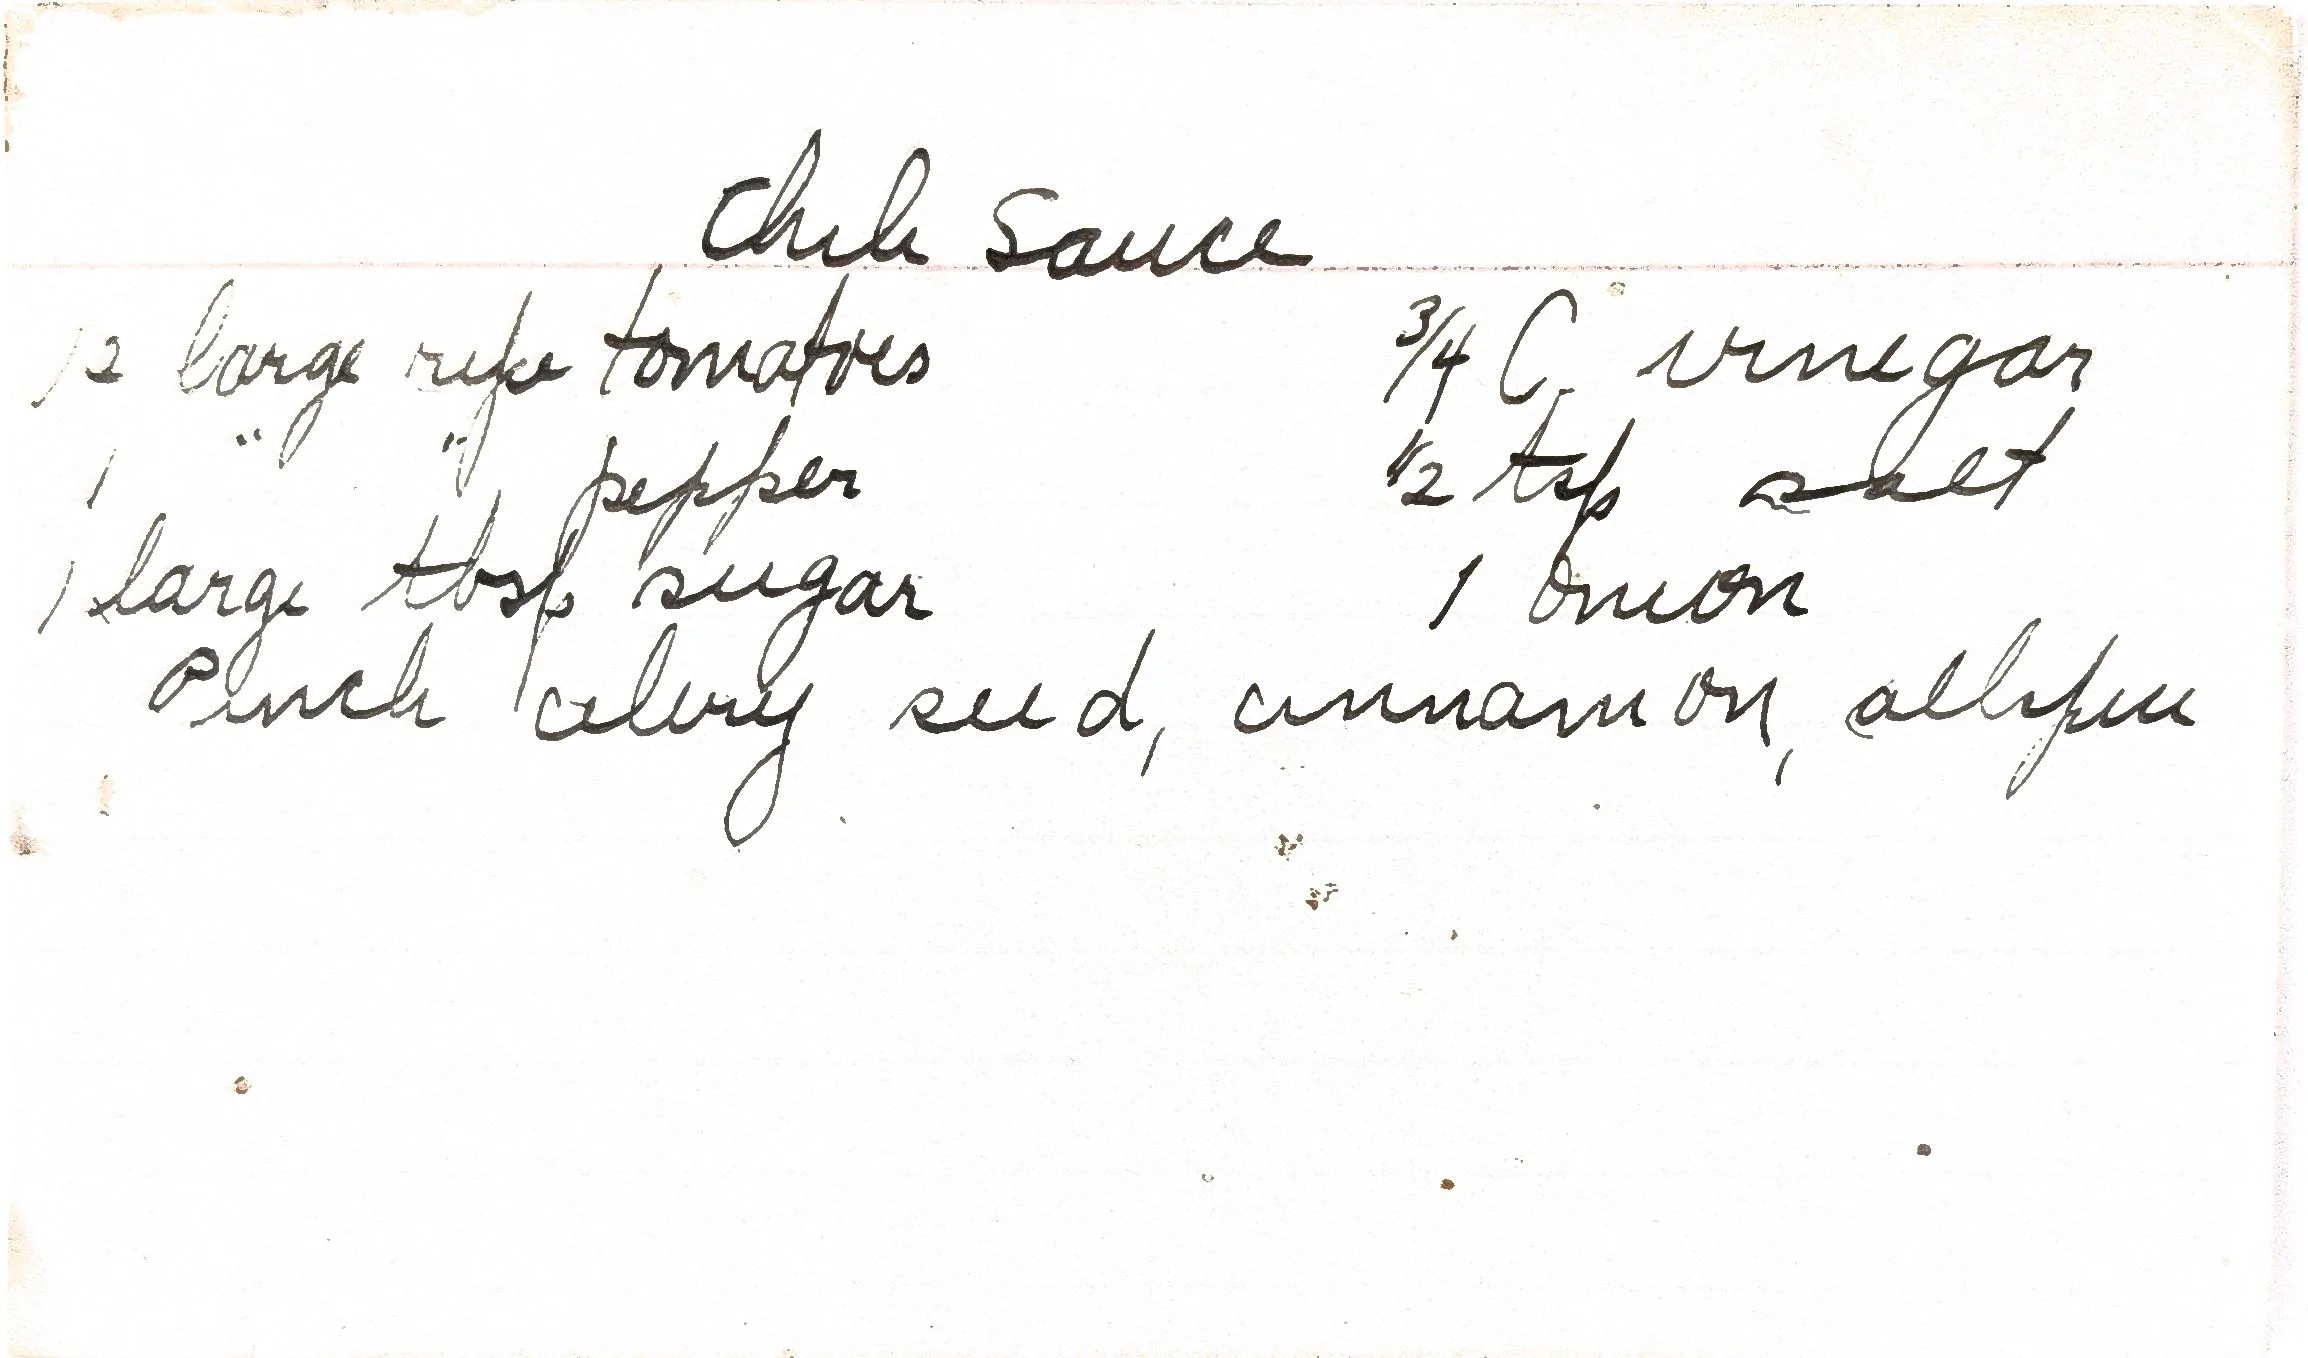 Chili Sauce
12 large ripe tomatoes 3/4 C. vinegar
1 " " pepper 1/2 tsp salt
1 large tbsp sugar 1 onion
Pinch celery seed, cinnamon, allspice